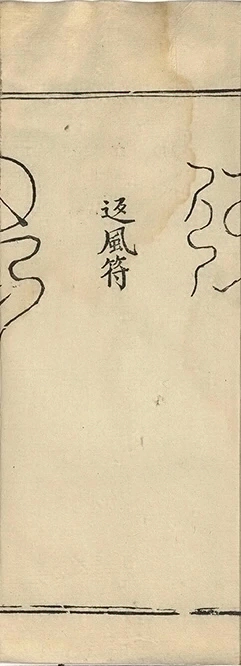 返風符